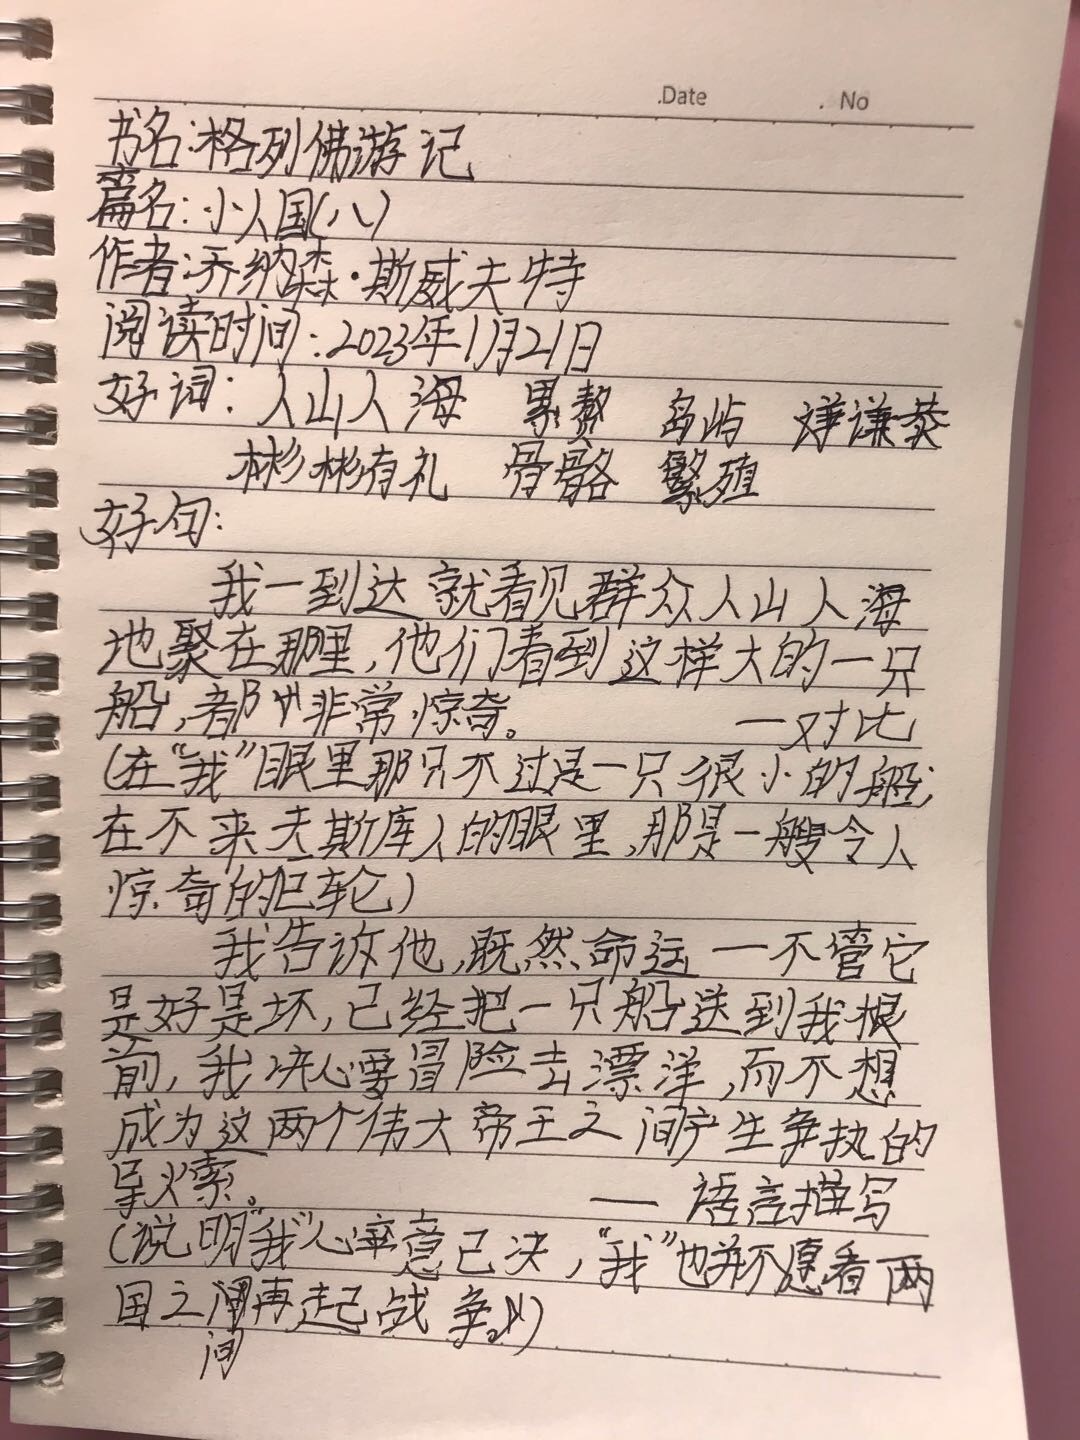 .Date . No
书名:格列佛游记
篇名:小人国(八)
作者:乔纳森·斯威夫特
阅读时间:2023年1月21日
好词: 人山人海 累赘 岛屿 谦恭
彬彬有礼 骨骼 繁殖
好句:
我一到达就看见群众人山人海
地聚在那里,他们看到这样大的一只
船,都非常惊奇。 —对比
(在“我”眼里那只不过是一只很小的船;
在不来夫斯库人的眼里,那是一艘令人
惊奇的巨轮)
我告诉他,既然命运一不管它
是好是坏,已经把一只船送到我根
前,我决心要冒险去漂洋,而不想
成为这两个伟大帝王之间产生争执的
导火索。 — 语言描写
(说明“我”心意已决,“我”也并不愿看两
国之间再起战争。)